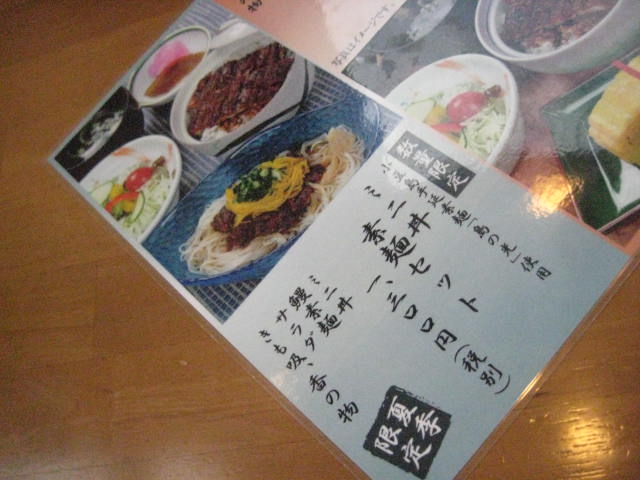 の物
写真はイメージです。
数量限定
小豆島手延素麺「島の光」使用
ミニ丼
素麺セット
一、三〇〇円(税別)
ミニ丼
鰻素麺
サラダ
きも吸、香の物
夏季限定